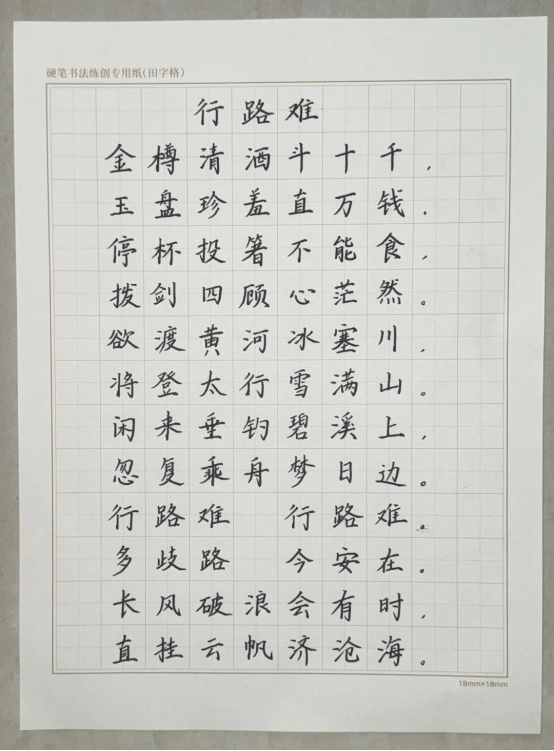 硬笔书法练创专用纸(田字格)
行路难
金樽清酒斗十千，
玉盘珍羞直万钱.
停杯投箸不能食，
拨剑四顾心茫然。
欲渡黄河冰塞川，
将登太行雪满山。
闲来垂钓碧溪上，
忽复乘舟梦日边。
行路难 行路难。
多歧路 今安在。
长风破浪会有时，
直挂云帆济沧海。
18mm×18mm